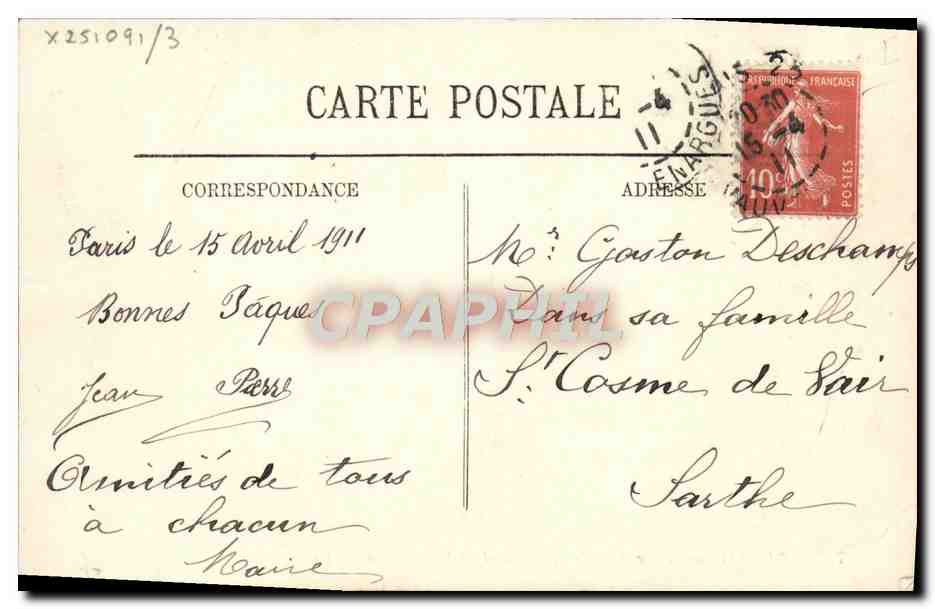 X251091/3
CARTE POSTALE
CORRESPONDANCE
Paris le 15 Avril 1911
Bonnes Pâques
Jean Pierre
Amitiés de tous
à chacun
CPAPHIL
ADRESSE
Mr. Gaston Deschamps
Dans sa famille
St. Cosme de Vair
Sarthe
RÉPUBLIQUE FRANÇAISE
10c
POSTES
15 -4
11
-4
11